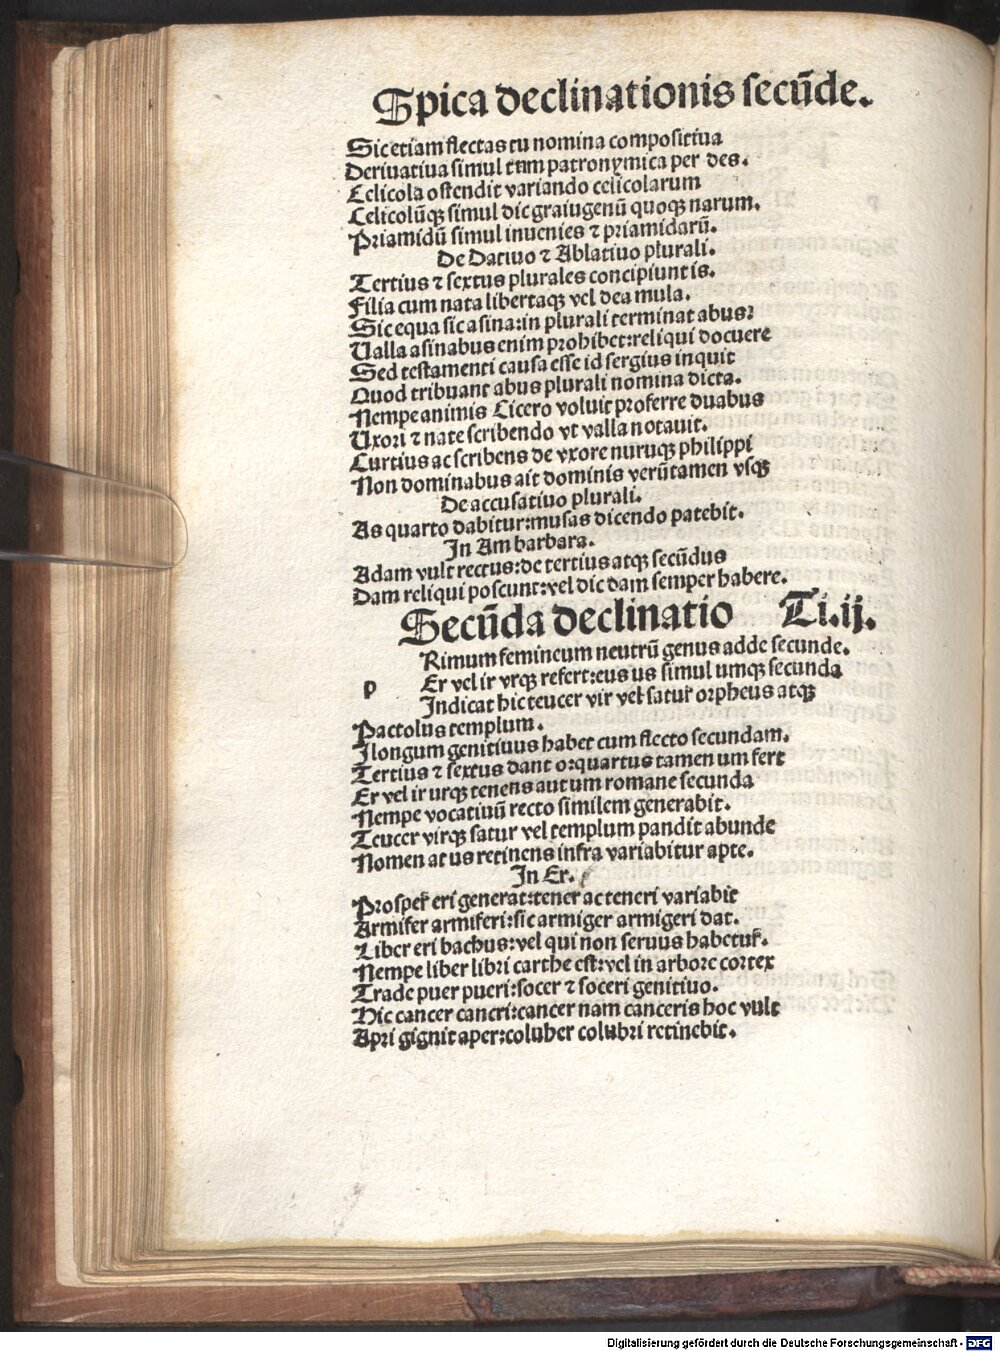 Spica declinationis secūde.
Sic etiam flectas tu nomina compositiua
Deriuatiua simul tum patronymica per des.
Celicola ostendit variando celicolarum
Celicolūqꝫ simul dic graiugenū quoqꝫ narum.
Priamidū simul inuenies ⁊ priamidarū.
De Datiuo ⁊ Ablatiuo plurali.
Tertius ⁊ sextus plurales concipiunt is.
Filia cum nata libertaqꝫ vel dea mula.
Sic equa sic asina: in plurali terminat abus:
Ualla asinabus enim prohibet: reliqui docuere
Sed testamenti causa esse id sergius inquit
Quod tribuant abus plurali nomina dicta.
Nempe animis Cicero voluit proferre duabus
Uxori ⁊ nate scribendo vt valla notauit.
Curtius ac scribens de vxore nuruqꝫ philippi
Non dominabus ait dominis verūtamen vsqꝫ
De accusatiuo plurali.
As quarto dabitur: musas dicendo patebit.
In Am barbara.
Adam vult rectus: de tertius atqꝫ secūdus
Dam reliqui poscunt: vel dic dam semper habere.
Secūda declinatio Ti.ij.
p Rimum femineum neutrū genus adde secunde.
Er vel ir vrqꝫ refert: eus us simul umqꝫ secunda
Indicat hic teucer vir vel satur orpheus atqꝫ
Pactolus templum.
I longum genitiuus habet cum flecto secundam.
Tertius ⁊ sextus dant o: quartus tamen um fert
Er vel ir urqꝫ tenens aut um romane secunda
Nempe vocatiuū recto similem generabit.
Teucer virqꝫ satur vel templum pandit abunde
Nomen at us retinens infra variabitur apte.
In Er.
Prosper eri generat: tener ac teneri variabit
Armifer armiferi: sic armiger armigeri dat.
Liber eri bachus: vel qui non seruus habetur.
Nempe liber libri carthe est: vel in arbore cortex
Trade puer pueri: socer ⁊ soceri genitiuo.
Hic cancer cancri: cancer nam canceris hoc vult
Apri gignit aper: coluber colubri retinebit.
Digitalisierung gefördert durch die Deutsche Forschungsgemeinschaft - DFG